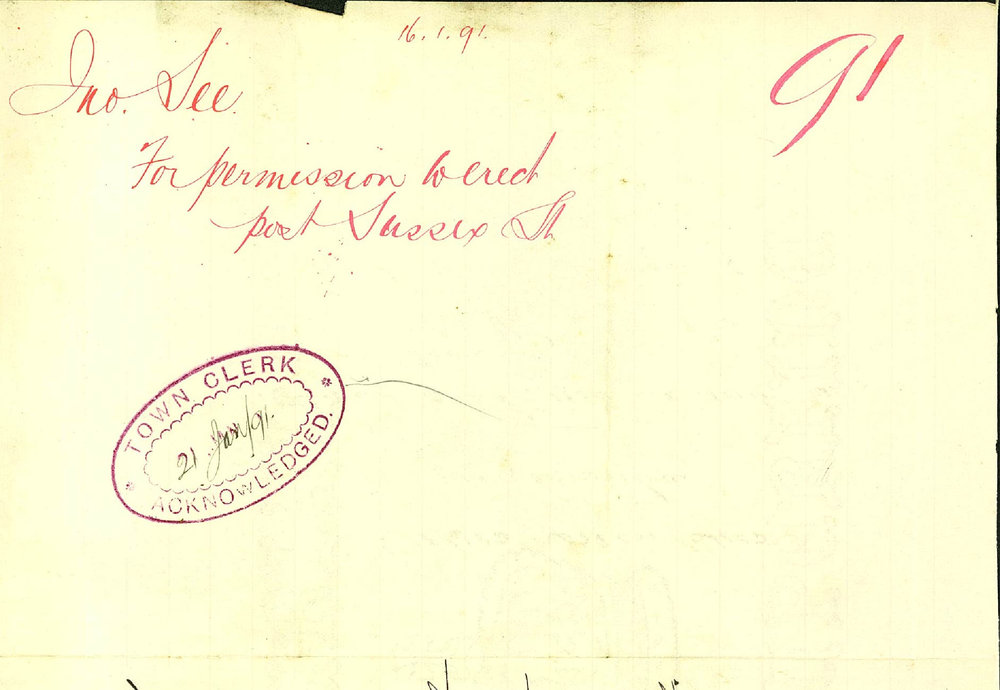 16.1.91.
91
Jno. See.
For permission to erect
post Sussex St
TOWN CLERK
21 Jan/91.
ACKNOWLEDGED.